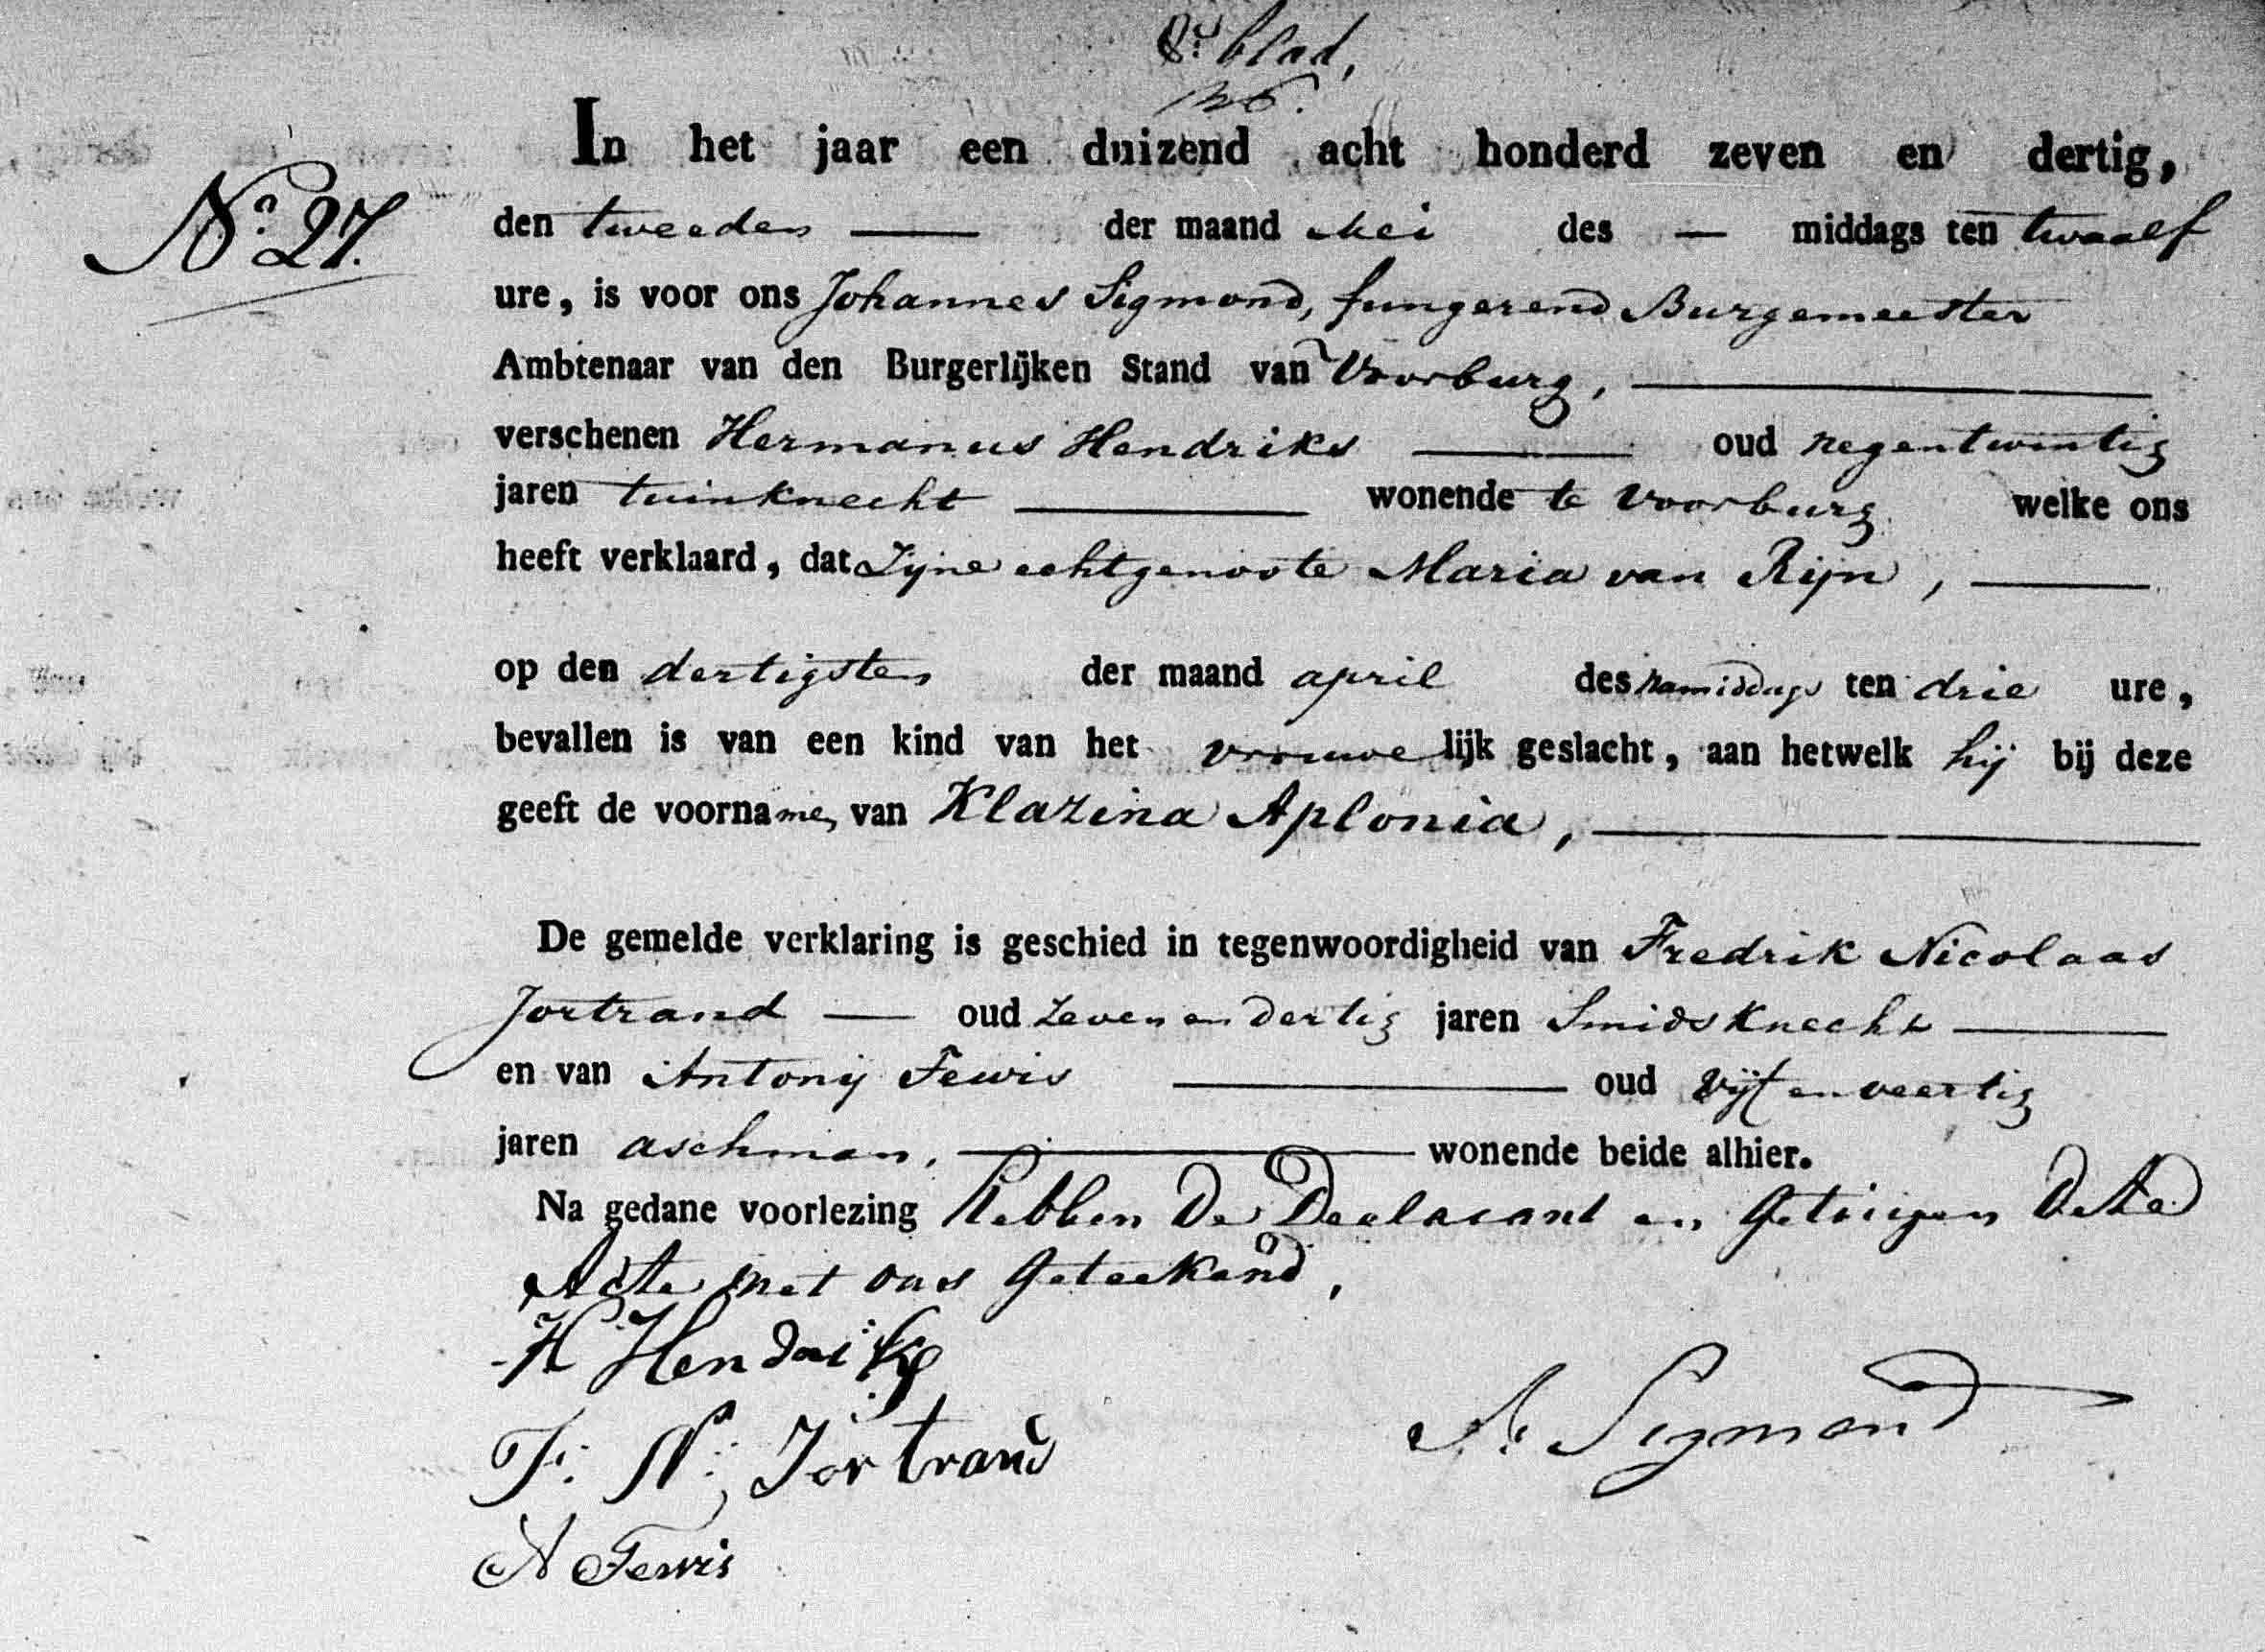 8e blad,
No. 27.
In het jaar een duizend acht honderd zeven en dertig,
den tweeden — der maand Mei des — middags ten twaalf
ure, is voor ons Johannes Sigmond, fungerend Burgemeester
Ambtenaar van den Burgerlijken Stand van Voorburg,
verschenen Hermanus Hendriks — oud negentwintig
jaren tuinknecht — wonende te Voorburg welke ons
heeft verklaard, dat Zijne echtgenoote Maria van Rijn, —
op den dertigsten der maand april des namiddags ten drie ure,
bevallen is van een kind van het vrouwelijk geslacht, aan hetwelk hij bij deze
geeft de voorname, van Klazina Aplonia, —
De gemelde verklaring is geschied in tegenwoordigheid van Fredrik Nicolaas
Jortrand — oud zeven en dertig jaren Smidsknecht —
en van Antonij Fewis — oud vijf en veertig
jaren aschman, — wonende beide alhier.
Na gedane voorlezing hebben de Declarant en Getuigen deze
Acte met ons Geteekend,
H Hendriks
F: N: Jortrand
Sigmond
A Fewis